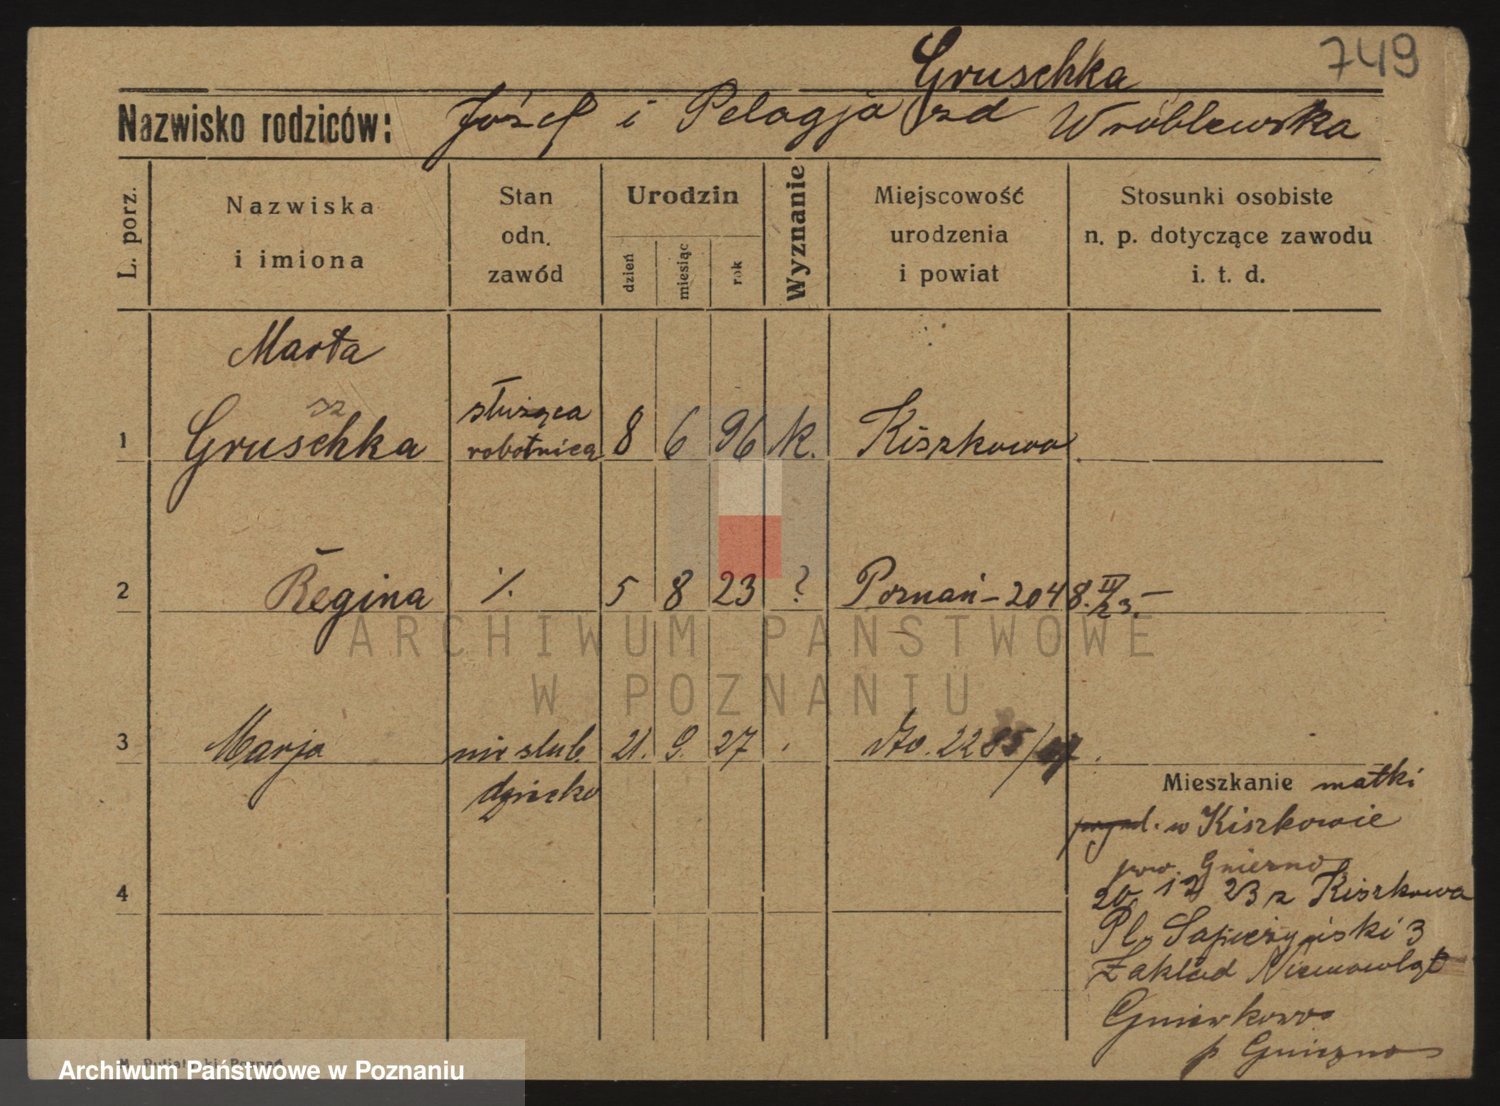 749
Gruschka
Nazwisko rodziców: Józef i Pelagja zd Wróblewska
L. porz.
Nazwiska
i imiona
Stan
odn.
zawód
Urodzin
dzień
miesiąc
rok
Wyznanie
Miejscowość
urodzenia
i powiat
Stosunki osobiste
n. p. dotyczące zawodu
i. t. d.
Marta
sz
1 Gruschka służąca robotnica 8 6 96 k. Kiszkowo
2 Regina ./. 5 8 23 ? Poznań - 2048. II/23. -
3 Marja nieślub. 21. 9. 27
dziecko
Mieszkanie matki
w Kiszkowie
pow. Gniezno
20 12 23 z Kiszkowa
Pl. Sapieżyński 3
Zakład Niemowląt
Gniewkowo
p Gniezno
4
ARCHIWUM PAŃSTWOWE
W POZNANIU
Archiwum Państwowe w Poznaniu